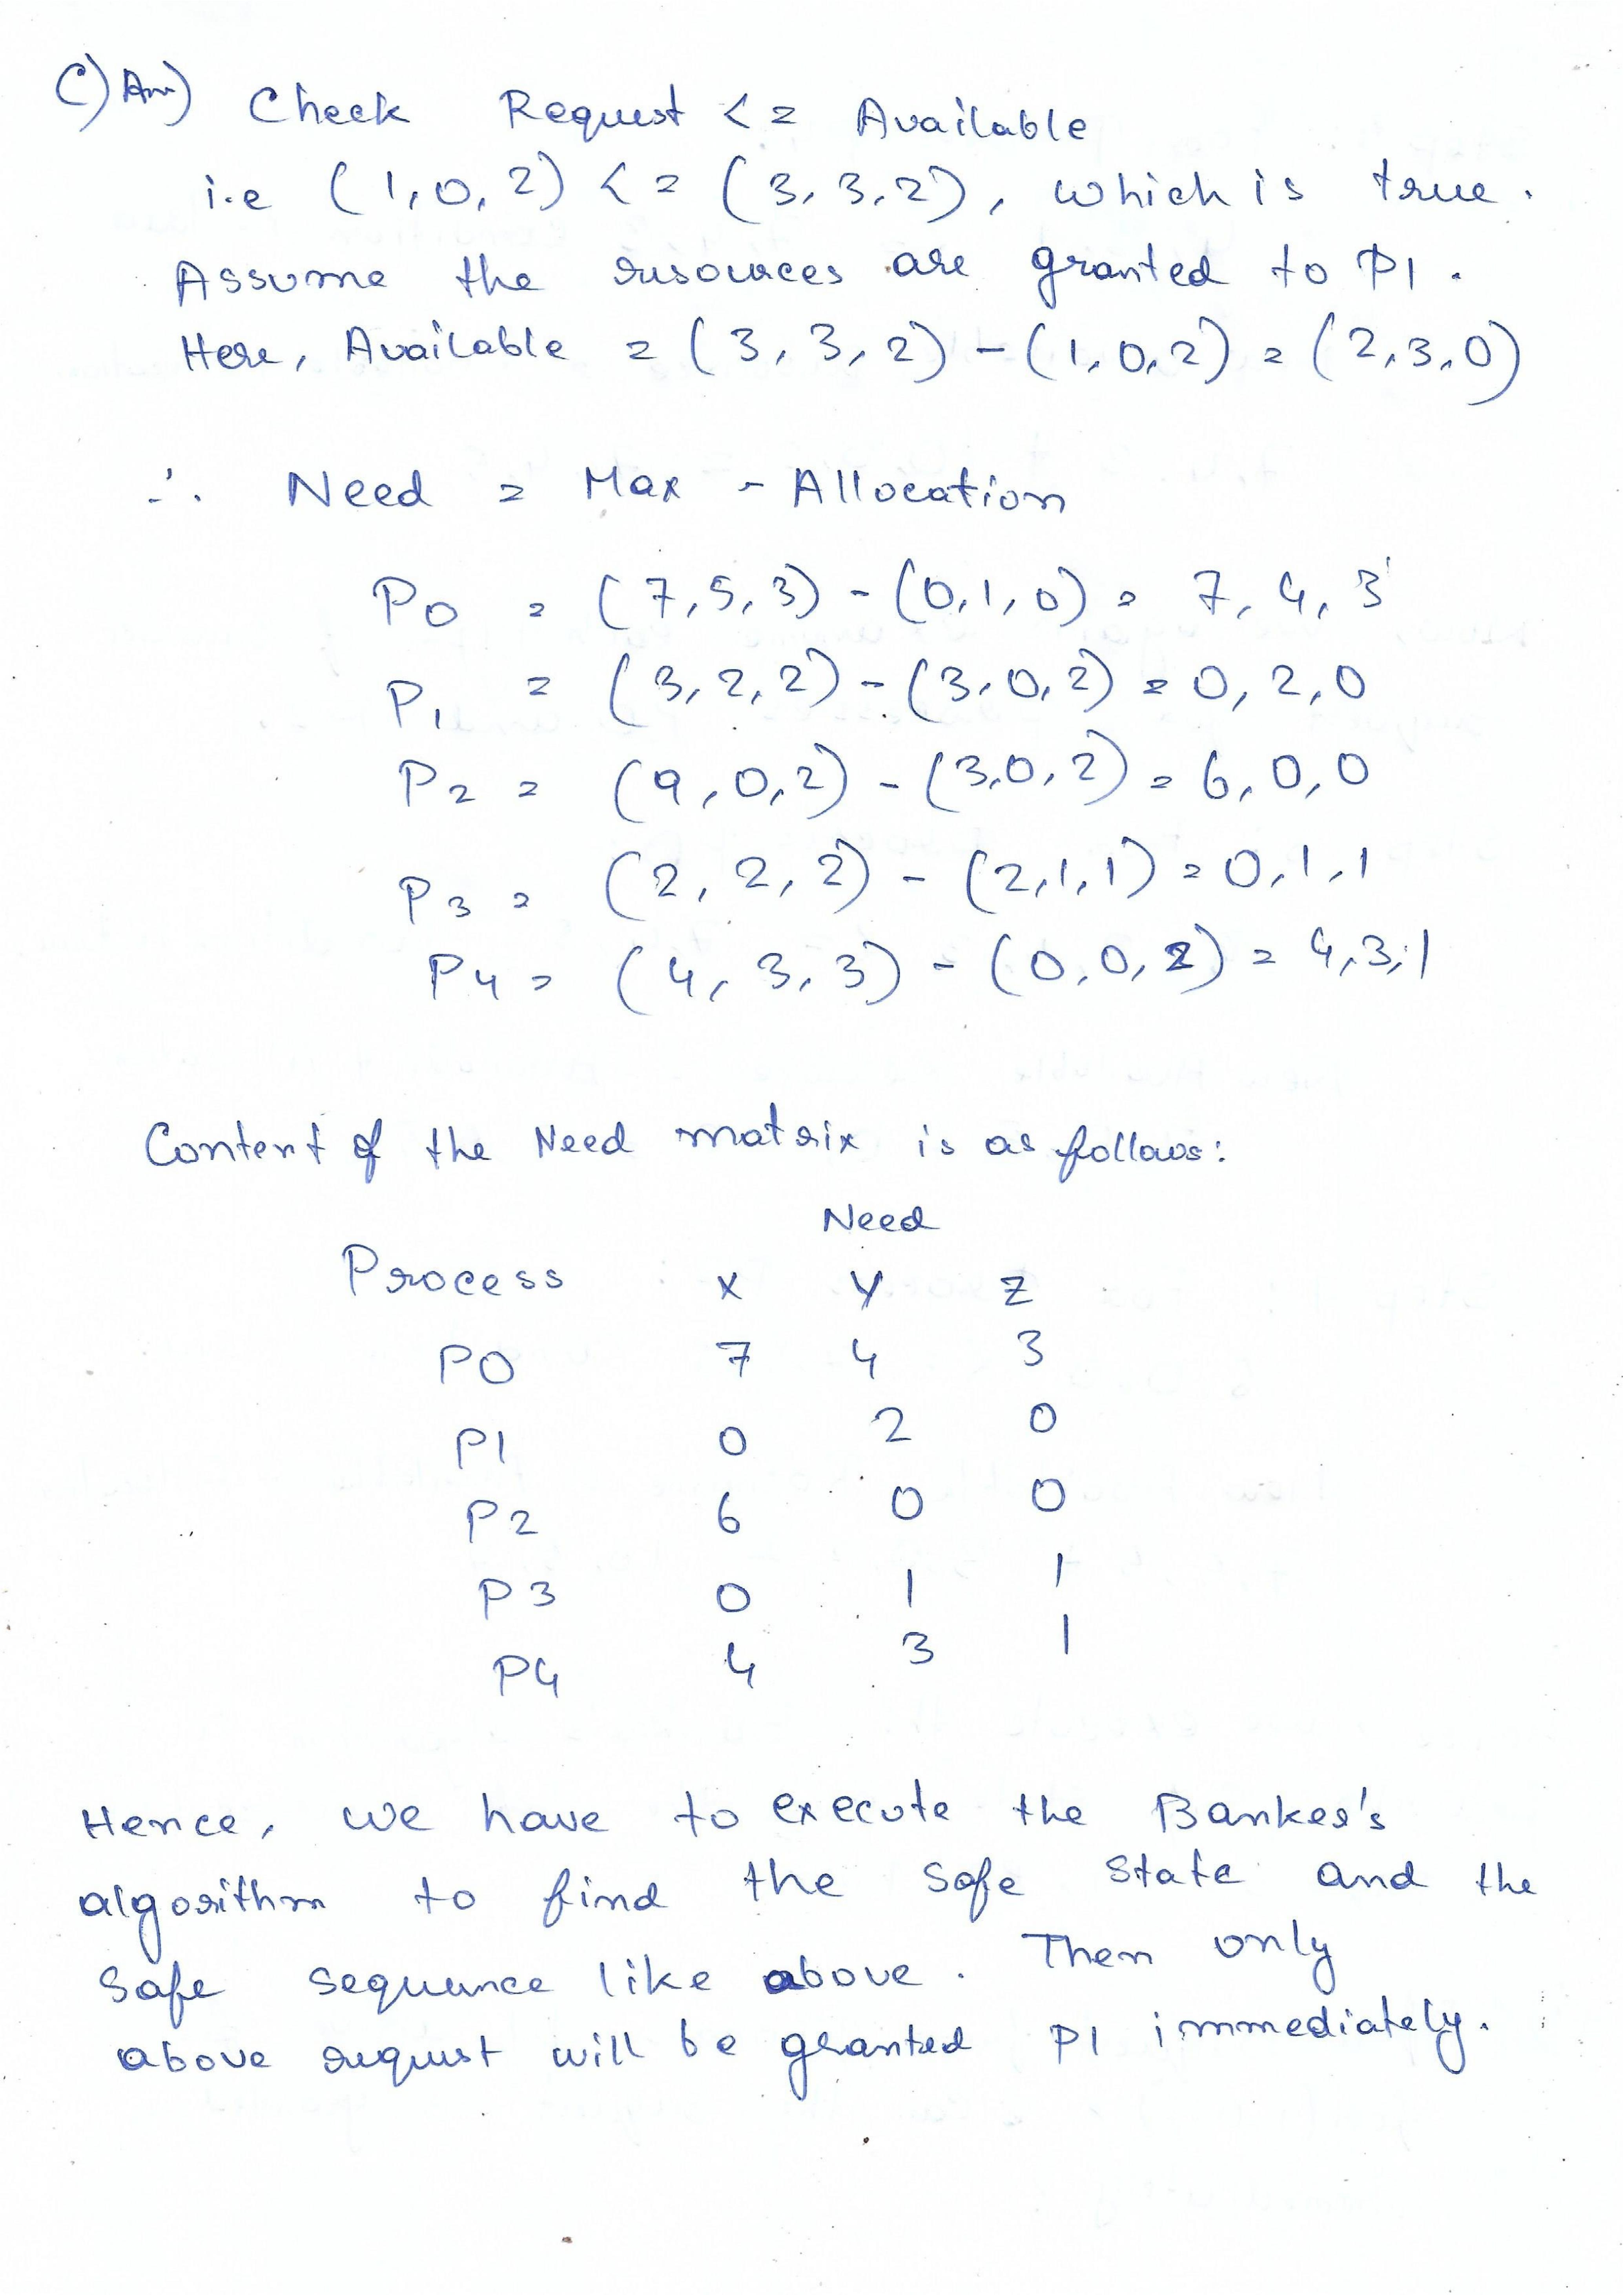 C) Ans) Check Request <= Available
i.e (1,0,2) <= (3,3,2), which is true.
Assume the resources are granted to P1.
Here, Available = (3,3,2) - (1,0,2) = (2,3,0)
∴ Need = Max - Allocation
P0 = (7,5,3) - (0,1,0) = 7,4,3
P1 = (3,2,2) - (3,0,2) = 0,2,0
P2 = (9,0,2) - (3,0,2) = 6,0,0
P3 = (2,2,2) - (2,1,1) = 0,1,1
P4 = (4,3,3) - (0,0,2) = 4,3,1
Content of the Need matrix is as follows:
Need
Process X Y Z
P0 7 4 3
P1 0 2 0
P2 6 0 0
P3 0 1 1
P4 4 3 1
Hence, we have to execute the Banker's
algorithm to find the safe state and the
safe sequence like above. Then only
above request will be granted P1 immediately.